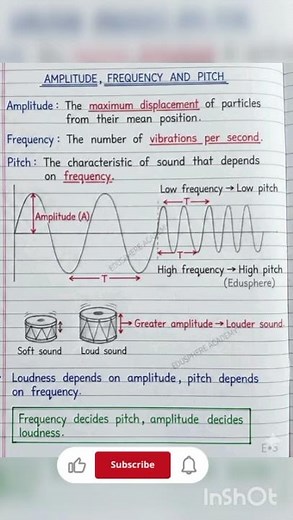 AMPLITUDE, FREQUENCY AND PITCH
Amplitude : The maximum displacement of particles
from their mean position.
Frequency : The number of vibrations per second.
Pitch : The characteristic of sound that depends
on frequency.
Low frequency → Low pitch
T
Amplitude (A)
T
T
High frequency → High pitch
(Edusphere)
EDUSPHERE ACADEMY
Greater amplitude → Louder sound
Soft sound
Loud sound
EDUSPHERE ACADEMY
Loudness depends on amplitude, pitch depends
on frequency.
Frequency decides pitch, amplitude decides
loudness.
Subscribe
InShOt